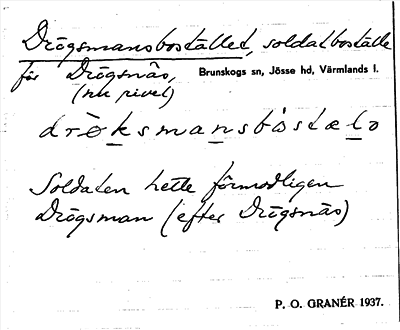 Drögsmansbostället, soldatboställe
för Drögsnäs, Brunskogs sn, Jösse hd, Värmlands l.
(nu rivet)
drö̀ksmansbòstælə
Soldaten hette förmodligen
Drögsman (efter Drögsnäs)
P. O. GRANÉR 1937.